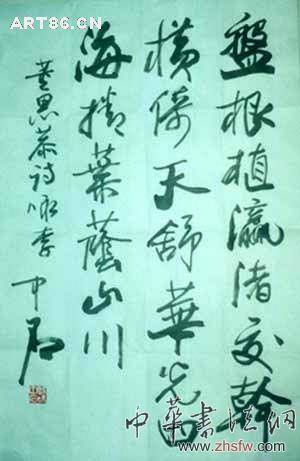 ART86.CN
盤根植瀛渚交幹
橫倚天舒華光四
海捲葉蔭山川
董思恭詩咏李
中石
中華書法網
www.zhsfw.com